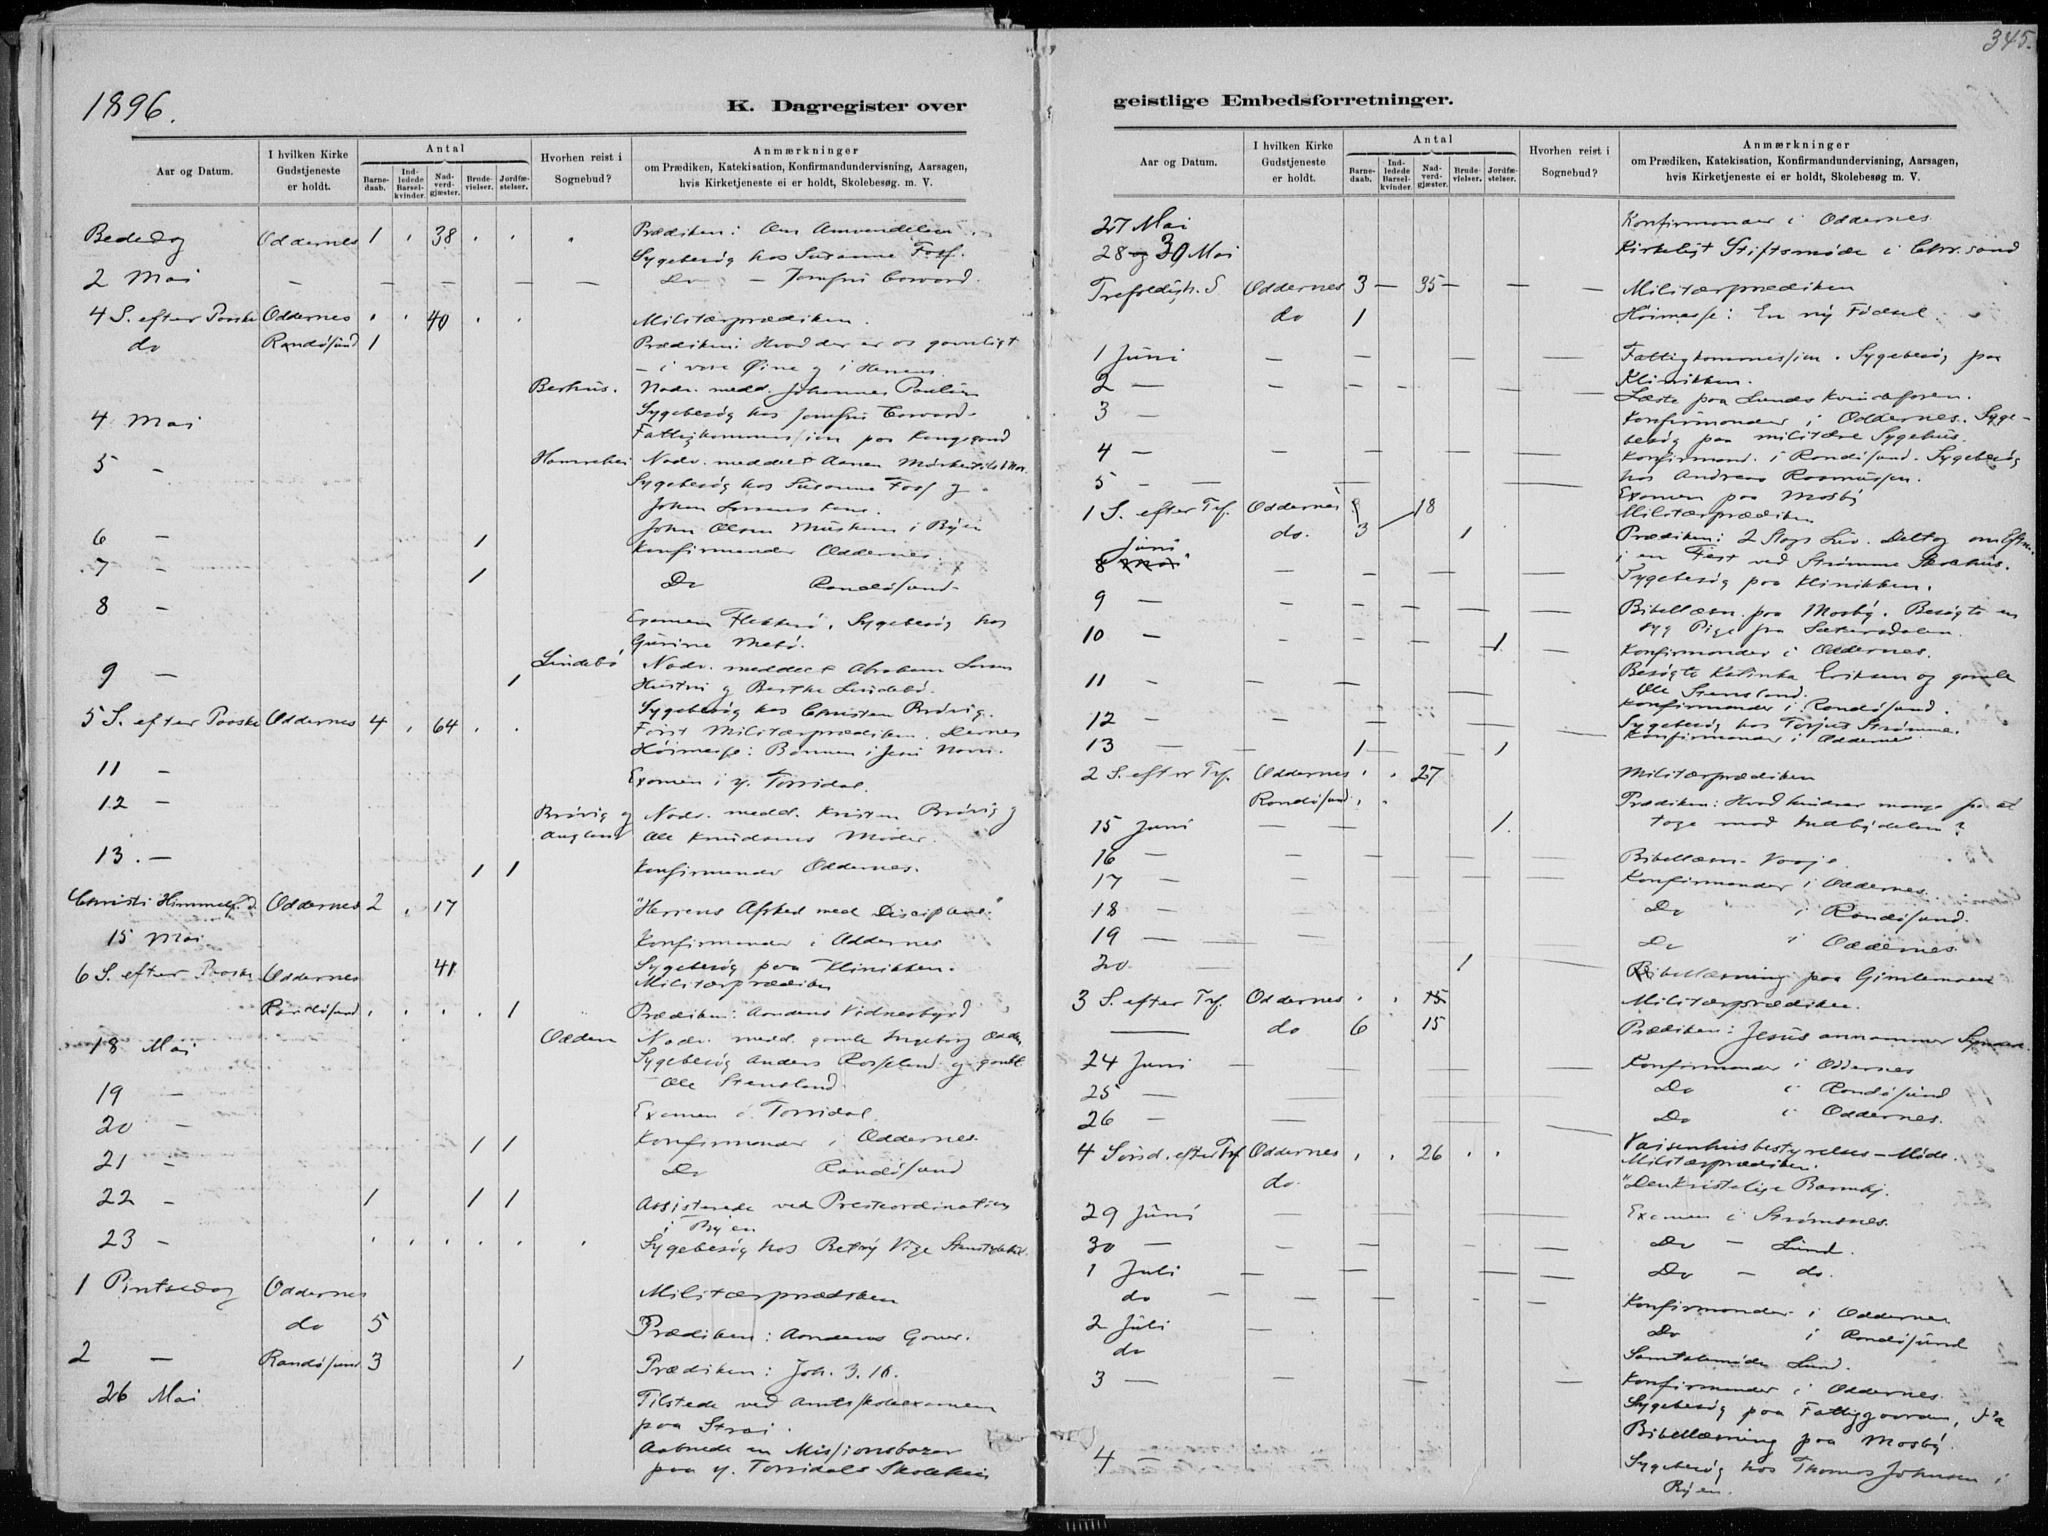 345.
1896.
K. Dagregister over
Aar og Datum. I hvilken Kirke Gudstjeneste er holdt. Antal Barne-daab. Ind-ledede Barsel-kvinder. Nad-verd-gjæster. Brude-vielser. Jordfæ-stelser. Hvorhen reist i Sognebud? Anmærkninger om Prædiken, Katekisation, Konfirmandundervisning, Aarsagen, hvis Kirketjeneste ei er holdt, Skolebesøg. m. V.
Bededag Oddernes 1 . 38 . . . Prædiken: Om Omvendelsen.
Sygebesøg hos Susanne Foss.
2 Mai — — — — — — — Do — Jomfru
4 S. efter Paaske Oddernes . . 40 . . Militærprædiken.
do Randøsund 1 Prædiken: Hvad der er os gavnligt
— i vore Øine og i Herrens
Nadv. medd. Johannes
4 Mai Sygebesøg hos Jomfru
Fattigkommission paa Kongsgaard
5 — Nadv. meddelt Aanen
Sygebesøg hos Susanne Foss og
Johan
John Olsen i Byen
6 — 1 Konfirmander Oddernes.
7 — 1 Do Randøsund
8 — Examen Flekkerø. Sygebesøg hos
Gurine
9 — 1 Lindebø Nadv. meddelt Abraham
Hustru og Berthe Lindebø.
Sygebesøg hos Christen Brøvig.
5 S. efter Paaske Oddernes 4 . 64 . . Først Militærprædiken. Dernæst
Høimesse: Bønnen i Jesu Navn.
11 — Examen i y. Torridal.
12 — Brøvig og Augland Nadv. medd. Kristen Brøvig og
Ole Knudsens Moder.
13. — 1 1 Konfirmander Oddernes.
Christi Himmelf. D. Oddernes 2 . 17 "Herrens Afsked med Disciplene."
15 Mai Konfirmander i Oddernes
6 S. efter Paaske Oddernes 41 Sygebesøg paa Klinikken.
Militærprædiken
Randøsund . . . . 1 Prædiken: Aandens Vidnesbyrd
18 Mai Nadv. medd. gamle Ingeborg
Sygebesøg Anders Rosseland og gamle
Ole Stensland.
19 —
20 — Examen i Torridal.
1 1 Konfirmander i Oddernes
21 — Do Randøsund
22 — 1 1 1 Assisterede ved Presteordination
i Byen
23 — . . . . . . Sygebesøg hos Betsy Vige
1 Pintsedag Oddernes Militærprædiken
do 5 Prædiken: Aandens Gaver.
2 — Randøsund 3 1 Prædiken: Joh. 3. 16.
26 Mai Tilstede ved Amtsskoleexamen
paa Strai.
Aabnede en Missionsbazar
paa y. Torridals Skolehus
geistlige Embedsforretninger.
Aar og Datum. I hvilken Kirke Gudstjeneste er holdt. Antal Barne-daab. Ind-ledede Barsel-kvinder. Nad-verd-gjæster. Brude-vielser. Jordfæ-stelser. Hvorhen reist i Sognebud? Anmærkninger om Prædiken, Katekisation, Konfirmandundervisning, Aarsagen, hvis Kirketjeneste ei er holdt, Skolebesøg m. V.
27 Mai Konfirmander i Oddernes
28 og 30 Mai Kirkeligt Stiftsmøde i Chr.sand
Trefoldigh. S. Oddernes 3 — 35 — — — Militærprædiken
do 1 Høimesse: En ny Fødsel.
1 Juni — — — — — Fattigkommission. Sygebesøg paa
2 — Klinikken.
Læste paa Lunds Kvindeforen.
3 — Konfirmander i Oddernes. Syge-
besøg paa militære Sygehus.
4 — Konfirmand. i Randøsund. Sygebesøg
hos Andreas Rasmussen.
5 — Examen paa Mosby
1 S. efter Trf. Oddernes 18 Militærprædiken
do. 3 1 Prædiken: 2 Slags Liv. Deltog om Eftm.
i en Fest ved Strømme Skolehus.
8 Juni Sygebesøg paa Klinikken.
9 — Bibellæsn. paa Mosby. Besøgte en
syg Pige fra Sætersdalen.
10 — 1 Konfirmander i Oddernes.
11 — Besøgte Kalinka Eriksen og gamle
Ole Stensland.
Konfirmander i Randøsund.
12 — Sygebesøg hos Torjus Strømme.
13 — 1 1 Konfirmander i Oddernes
2 S. efter Trf. Oddernes . . 27 Militærprædiken
Randøsund . . Prædiken: Hvad hindrer mange fra at
tage mod Indbydelsen?
15 Juni 1.
16 — Bibellæsn.
17 — Konfirmander i Oddernes.
18 — Do i Randøsund.
19 — Do i Oddernes
20 1 Bibellæsning paa Gimlemoen
3 S. efter Trf. Oddernes . . 15 Militærprædiken.
— do 6 15 Prædiken: Jesus annammer Syndere.
24 Juni Konfirmander i Oddernes
25 — Do i Randøsund
26 — Do i Oddernes.
Vaisenhusbestyrelses-Møde.
4 Sønd. efter Trf. Oddernes . . 26 . . Militærprædiken.
do. "Den Kristelige Barmhj.
29 Juni Examen i Strømsnes.
30 — Do — Lund.
1 Juli Do — do.
do Konfirmander i Oddernes
2 Juli Do i Randøsund
do Samtalemøde Lund.
3 — Konfirmander i Oddernes.
Sygebesøg paa Fattiggaarden,
Bibellæsning paa Mosby.
4 — Sygebesøg hos Thomas Johnsen i
Byen.